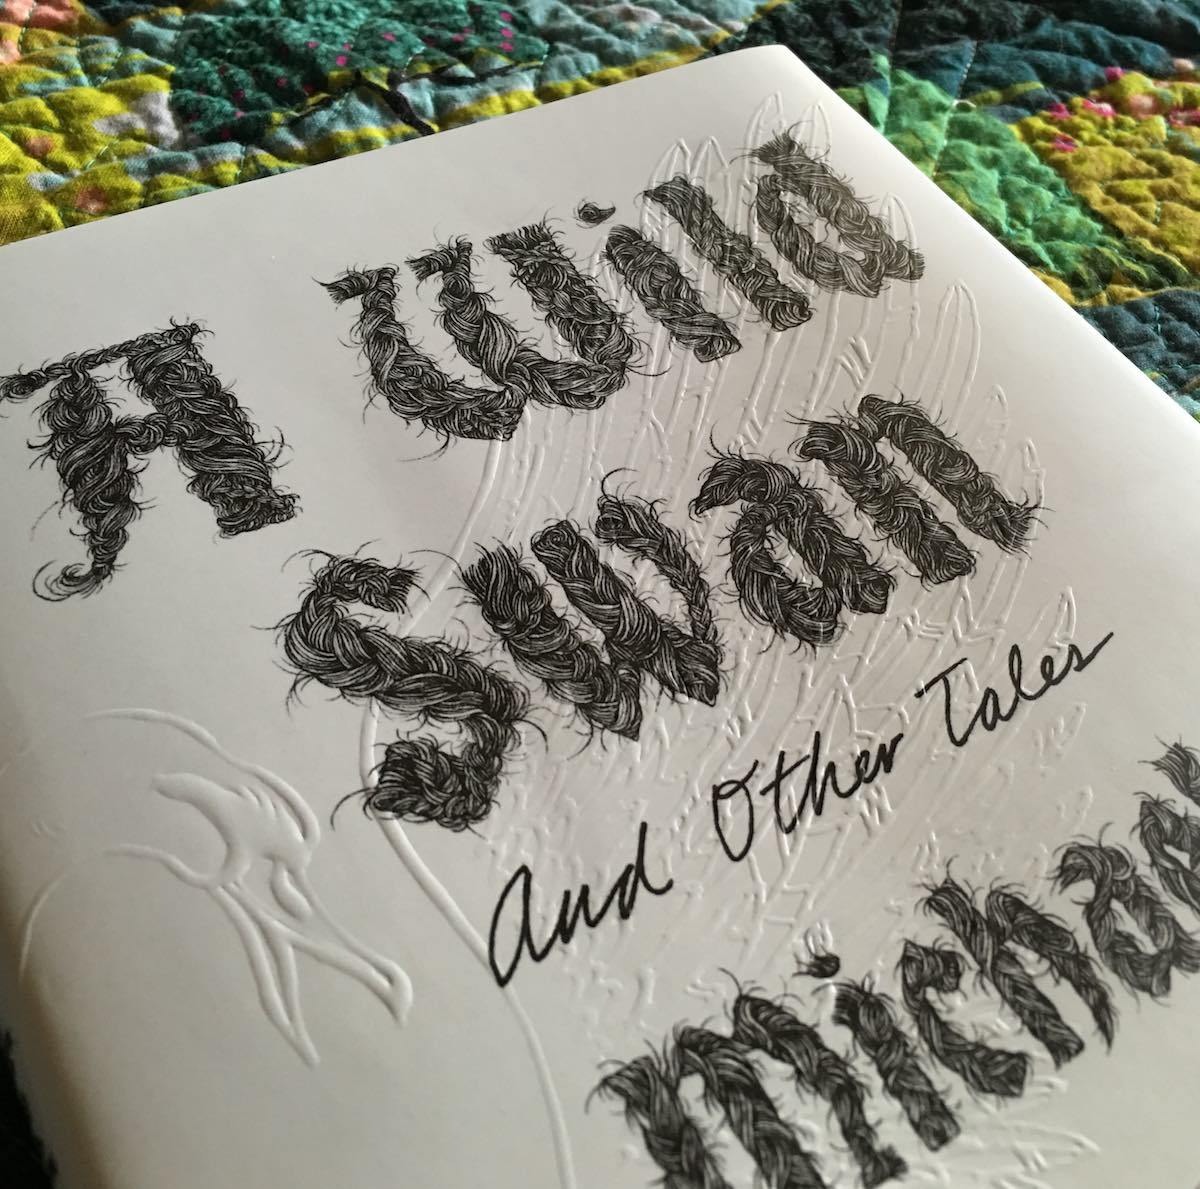 A Wild
Swan
and Other Tales
Michae